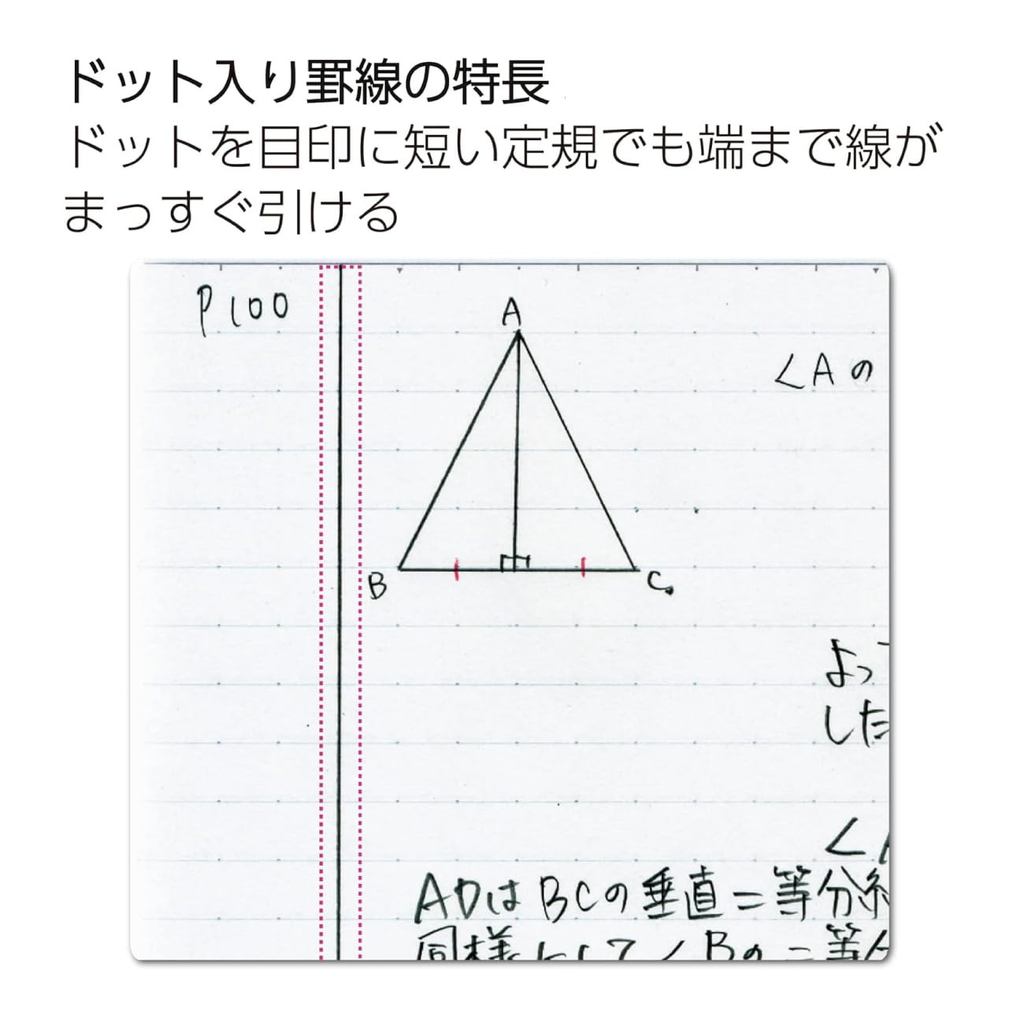 ドット入り罫線の特長
ドットを目印に短い定規でも端まで線が
まっすぐ引ける
P100
A
∠Aの
B
C
よっ
した
∠A
ADはBCの垂直二等分
同様にして∠Bの二等